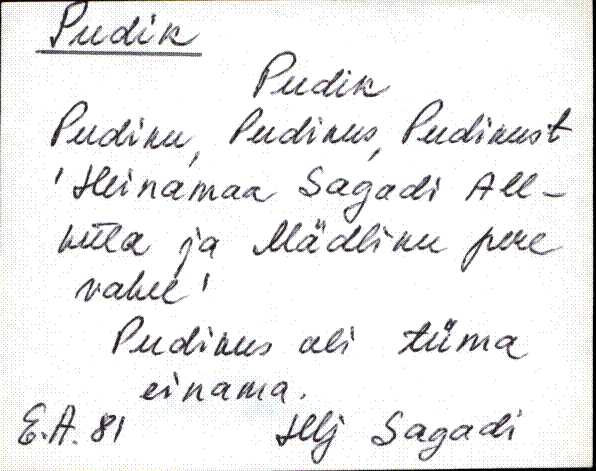 Pudik
Pudik
Pudiku, Pudikus, Pudikust
'Heinamaa Sagadi All-
küla ja Mädliku pere
vahel'
Pudikus oli tüma
einama.
E.A. 81 Hlj Sagadi